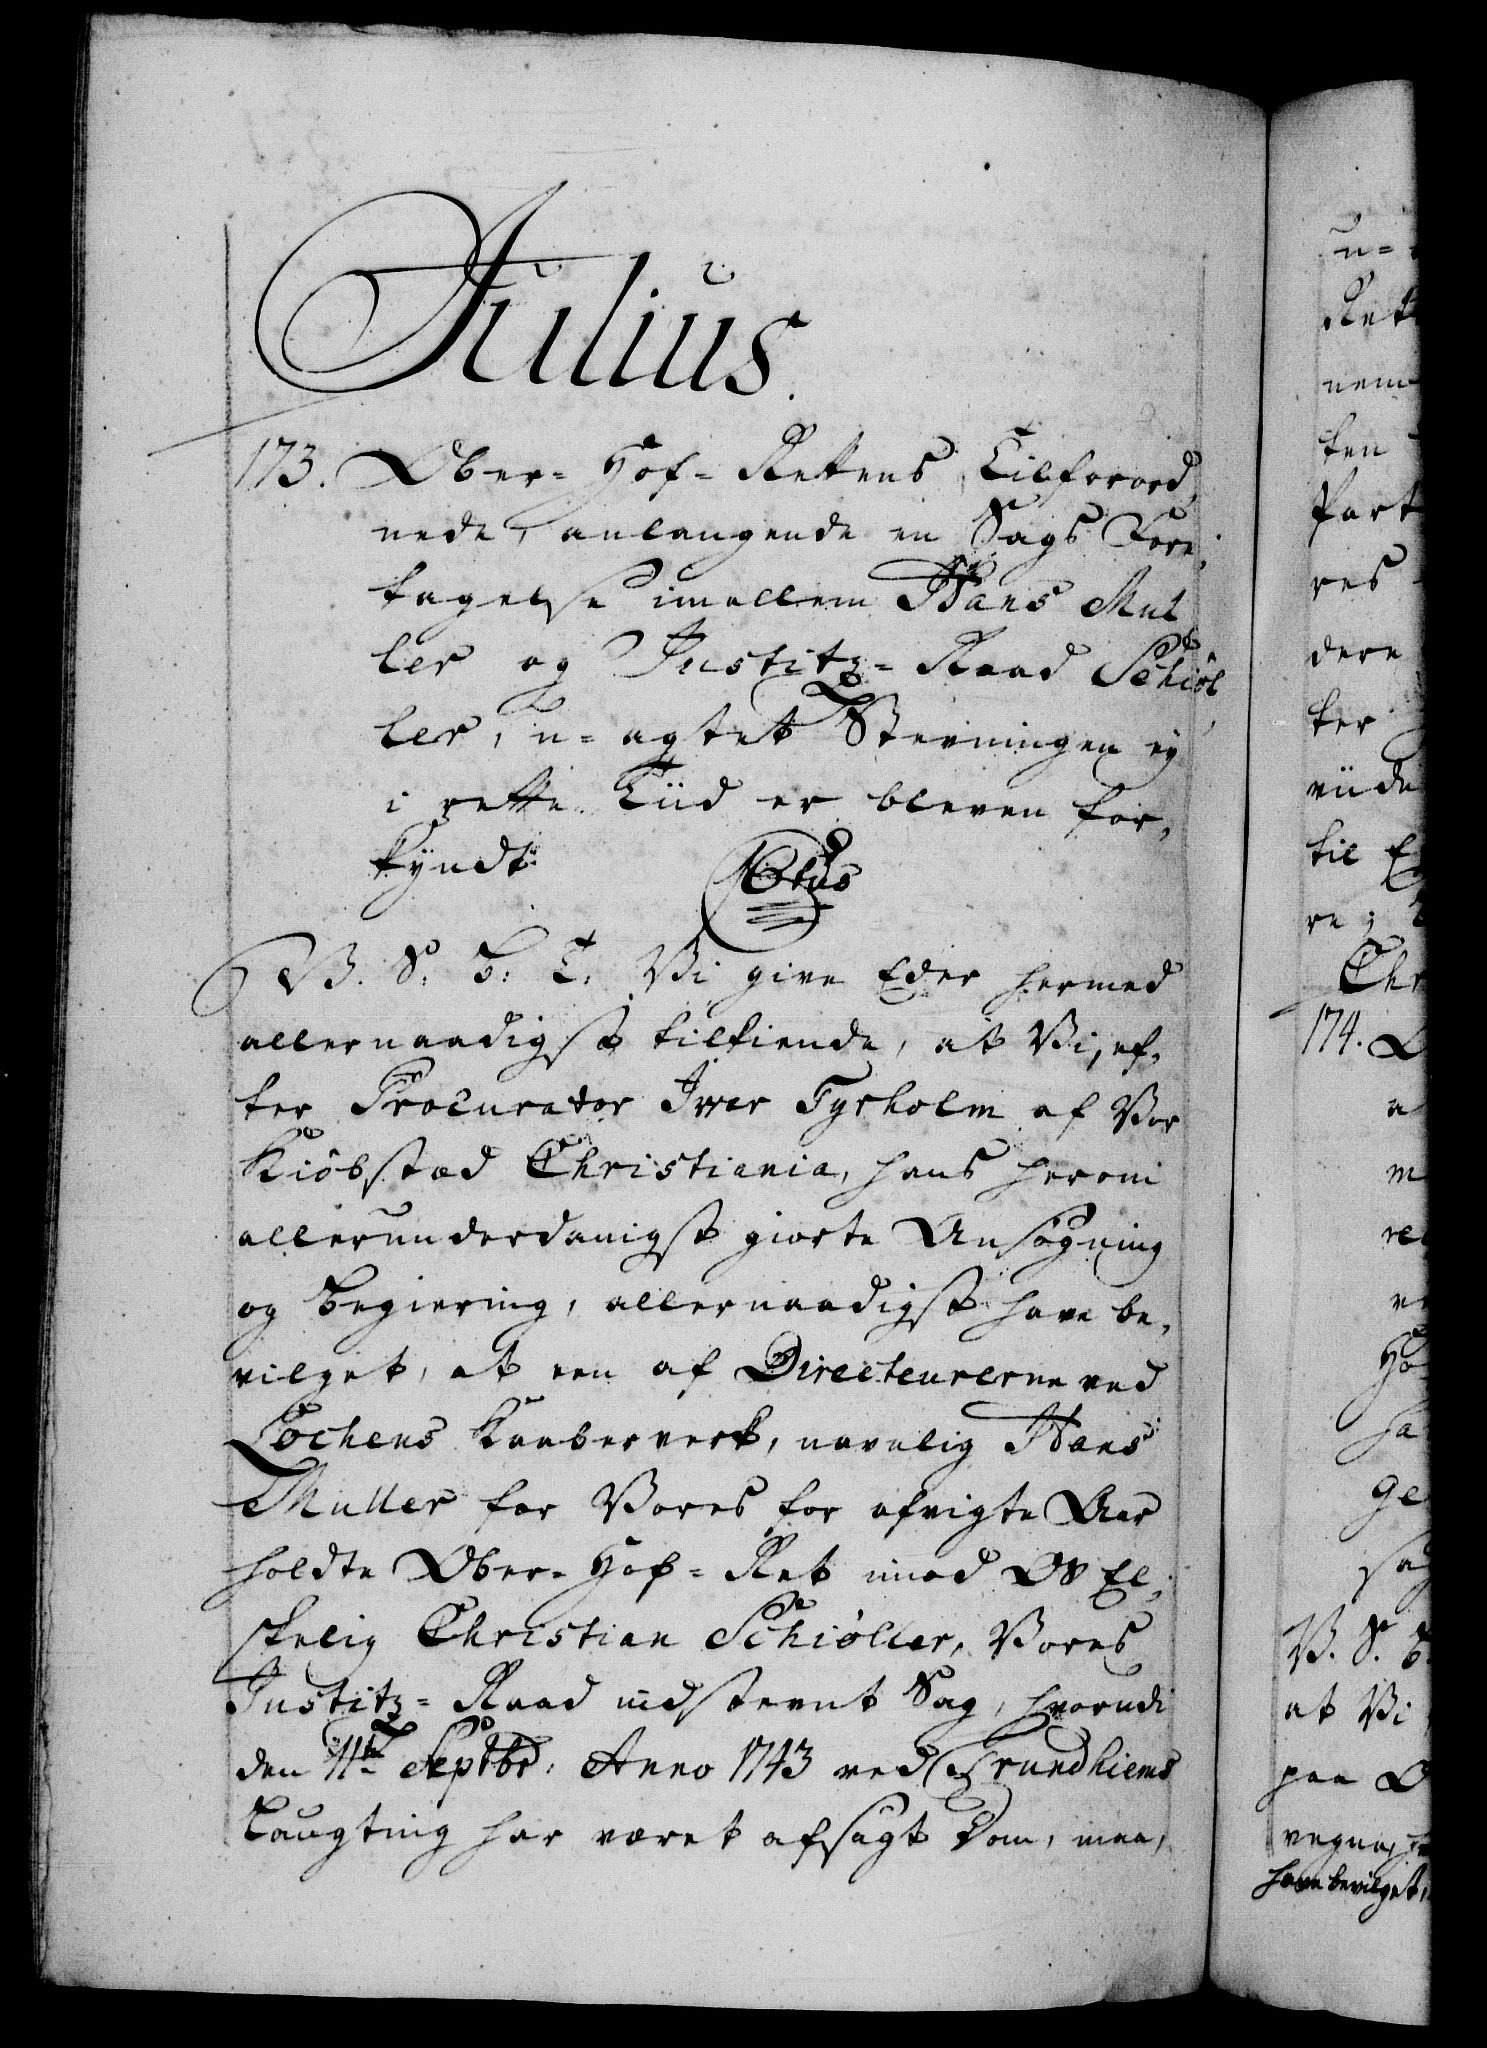 Julius.
173. Ober-Hof-Rettens Tilforord,
nede, anlangende en Sags Fore,
tagelse imellem Hans Mul
ler og Justitz-Raad Schiøl
ler, u-agtet Stevningen ey
i rette Tiid er bleven for,
kyndt.
V. S. B: T: Vi give Eder hermed
allernaadigst tilkiende, at Vi, ef,
ter Procurator Iver Tyrholm af Vor
Kiøbstæd Christiania, hans herom
allerunderdanigst giorte Ansøgning
og Begiering, allernaadigst have be,
vilget, at een af Directeurerne ved
Lochens Kaaberverk, navnlig Hans
Muller for Vores for afvigte Aar
holdte Ober-Hof-Ret imod Os El,
skelig Christian Schiøller, Vores
Justitz-Raad indstevnt Sag, hvorudi
den 11te Septbr: Anno 1743 ved Trundhiems
Laugting har været afsagt Dom, maa,
u-
Rett
nem
ten
Part
res
dere
ter
viide
til
re;
Chr
174.
a
m
ha
ge
sag
V. S. B.
at Vi
paa O
vegne,
have bevilget,